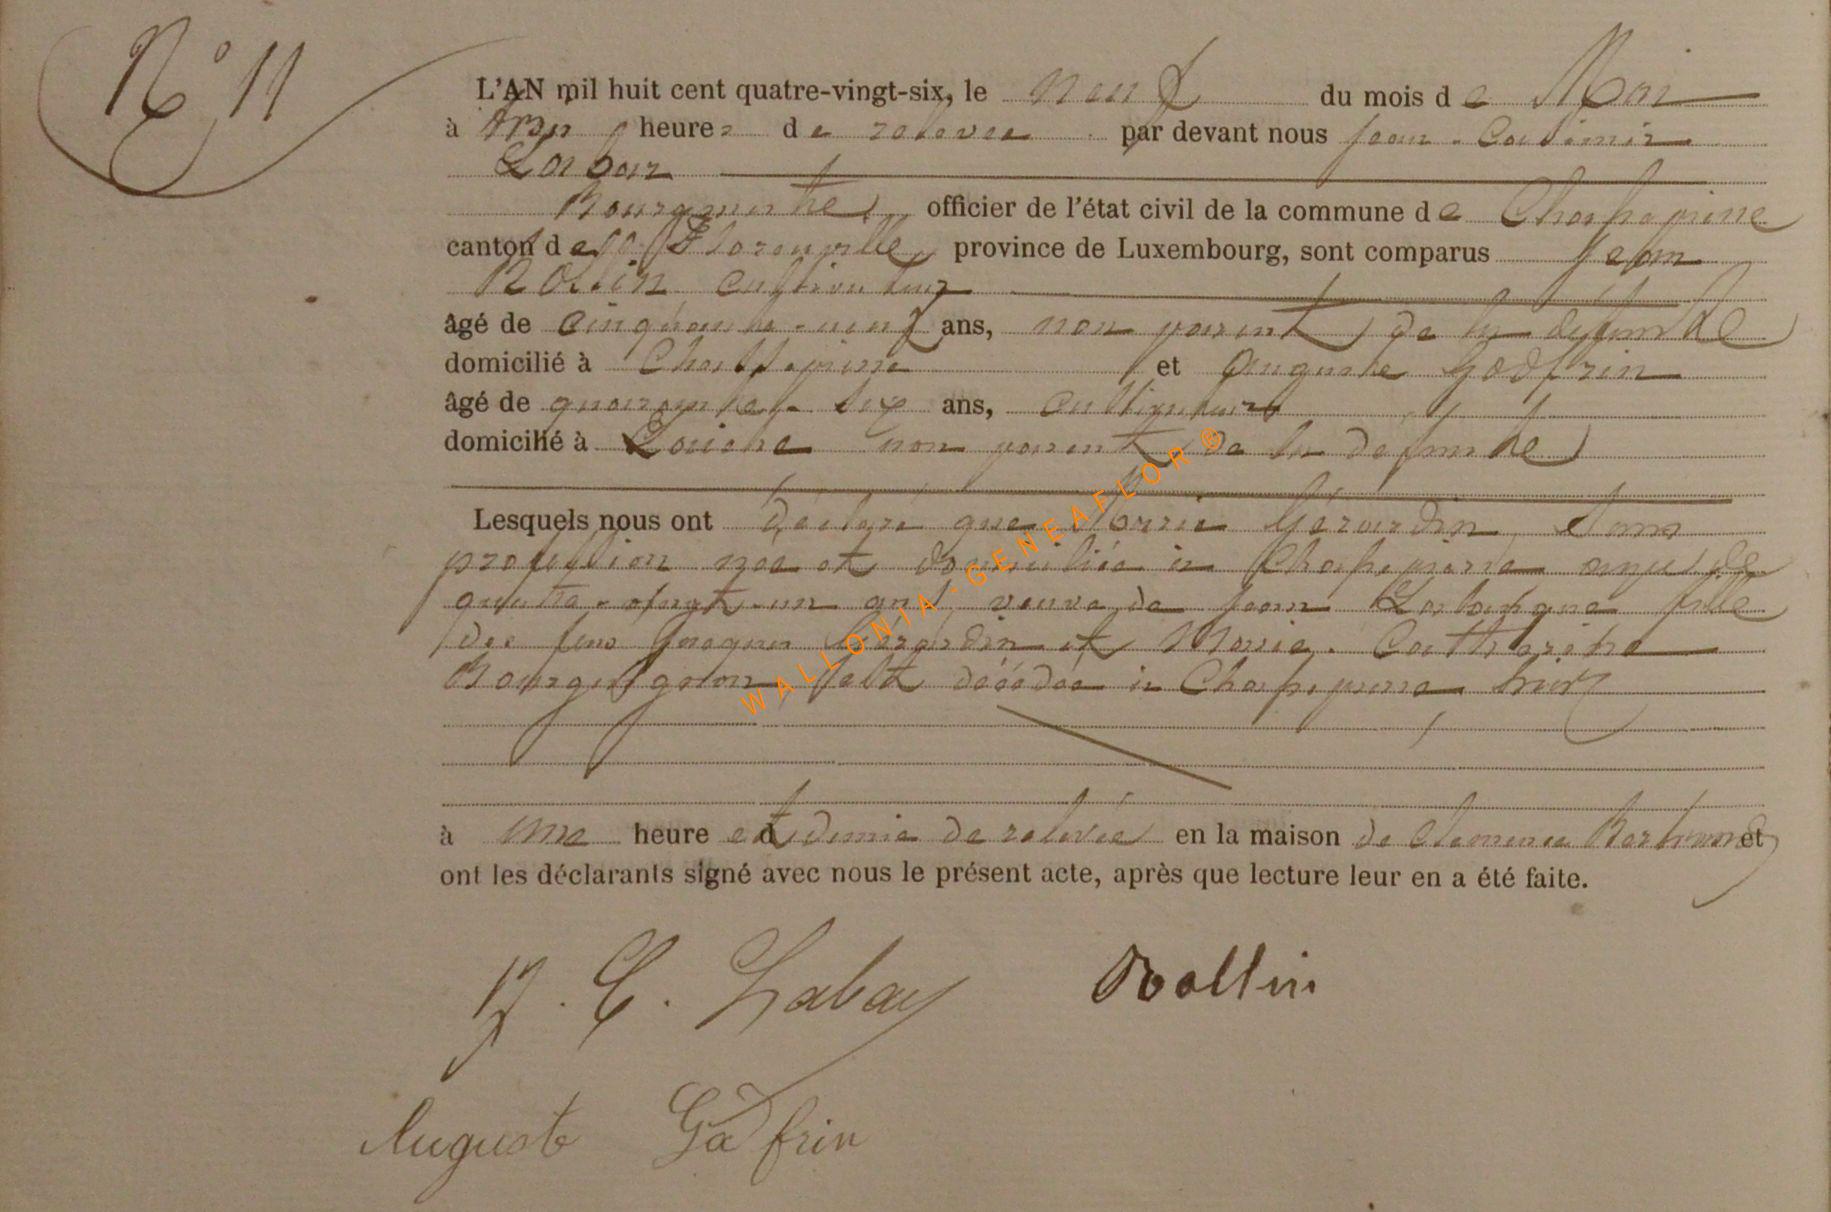 N° 11
L'AN mil huit cent quatre-vingt-six, le neuf du mois de Mai
à trois heures de relevée par devant nous Jean-Casimir
Labay
Bourgmestre officier de l'état civil de la commune de Chassepierre
canton de Florenville, province de Luxembourg, sont comparus Jean
Rollin cultivateur
âgé de cinquante-neuf ans, non parent de la défunte
domicilié à Chassepierre et Auguste Godfrin
âgé de quarante-six ans, cultivateur
domicilié à Laiche non parent de la défunte
Lesquels nous ont déclaré que Marie Gérardin sans
profession née et domiciliée à Chassepierre âgée de
quatre-vingt-un ans, veuve de Jean fille
des feus Jacques Gérardin et Marie-Catherine
Bourguignon est décédée à Chassepierre hier
à une heure et demie de relevée en la maison de Clémence et
ont les déclarants signé avec nous le présent acte, après que lecture leur en a été faite.
J. C. Labay Rollin
Auguste Godfrin
WALLONIA-GENEAFLOR®